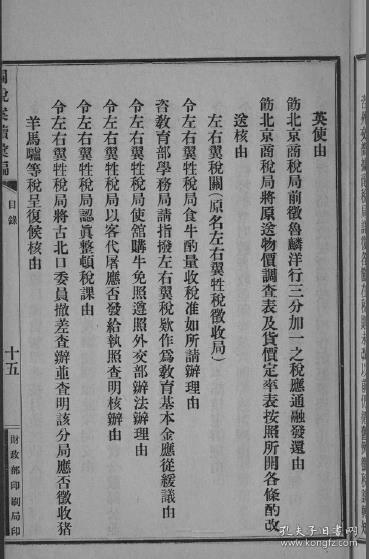 英使由
飭北京商稅局前徵魯麟洋行三分加一之稅應通融發還由
飭北京商稅局將原送物價調查表及貨價定率表按照所開各條酌改
送核由
左右翼稅關（原名左右翼牲稅徵收局）
令左右翼牲稅局食牛酌量收稅准如所請辦理由
咨敎育部學務局請指撥左右翼稅欵作爲敎育基本金應從緩議由
令左右翼牲稅局使舘購牛免照遵照外交部辦法辦理由
令左右翼牲稅局以客代屠應否發給執照查明核辦由
令左右翼牲稅局認眞整頓稅課由
令左右翼牲稅局將古北口委員撤差查辦並查明該分局應否徵收猪
羊馬驢等稅呈復候核由
目錄
十五
財政部印刷局印
孔夫子旧书网